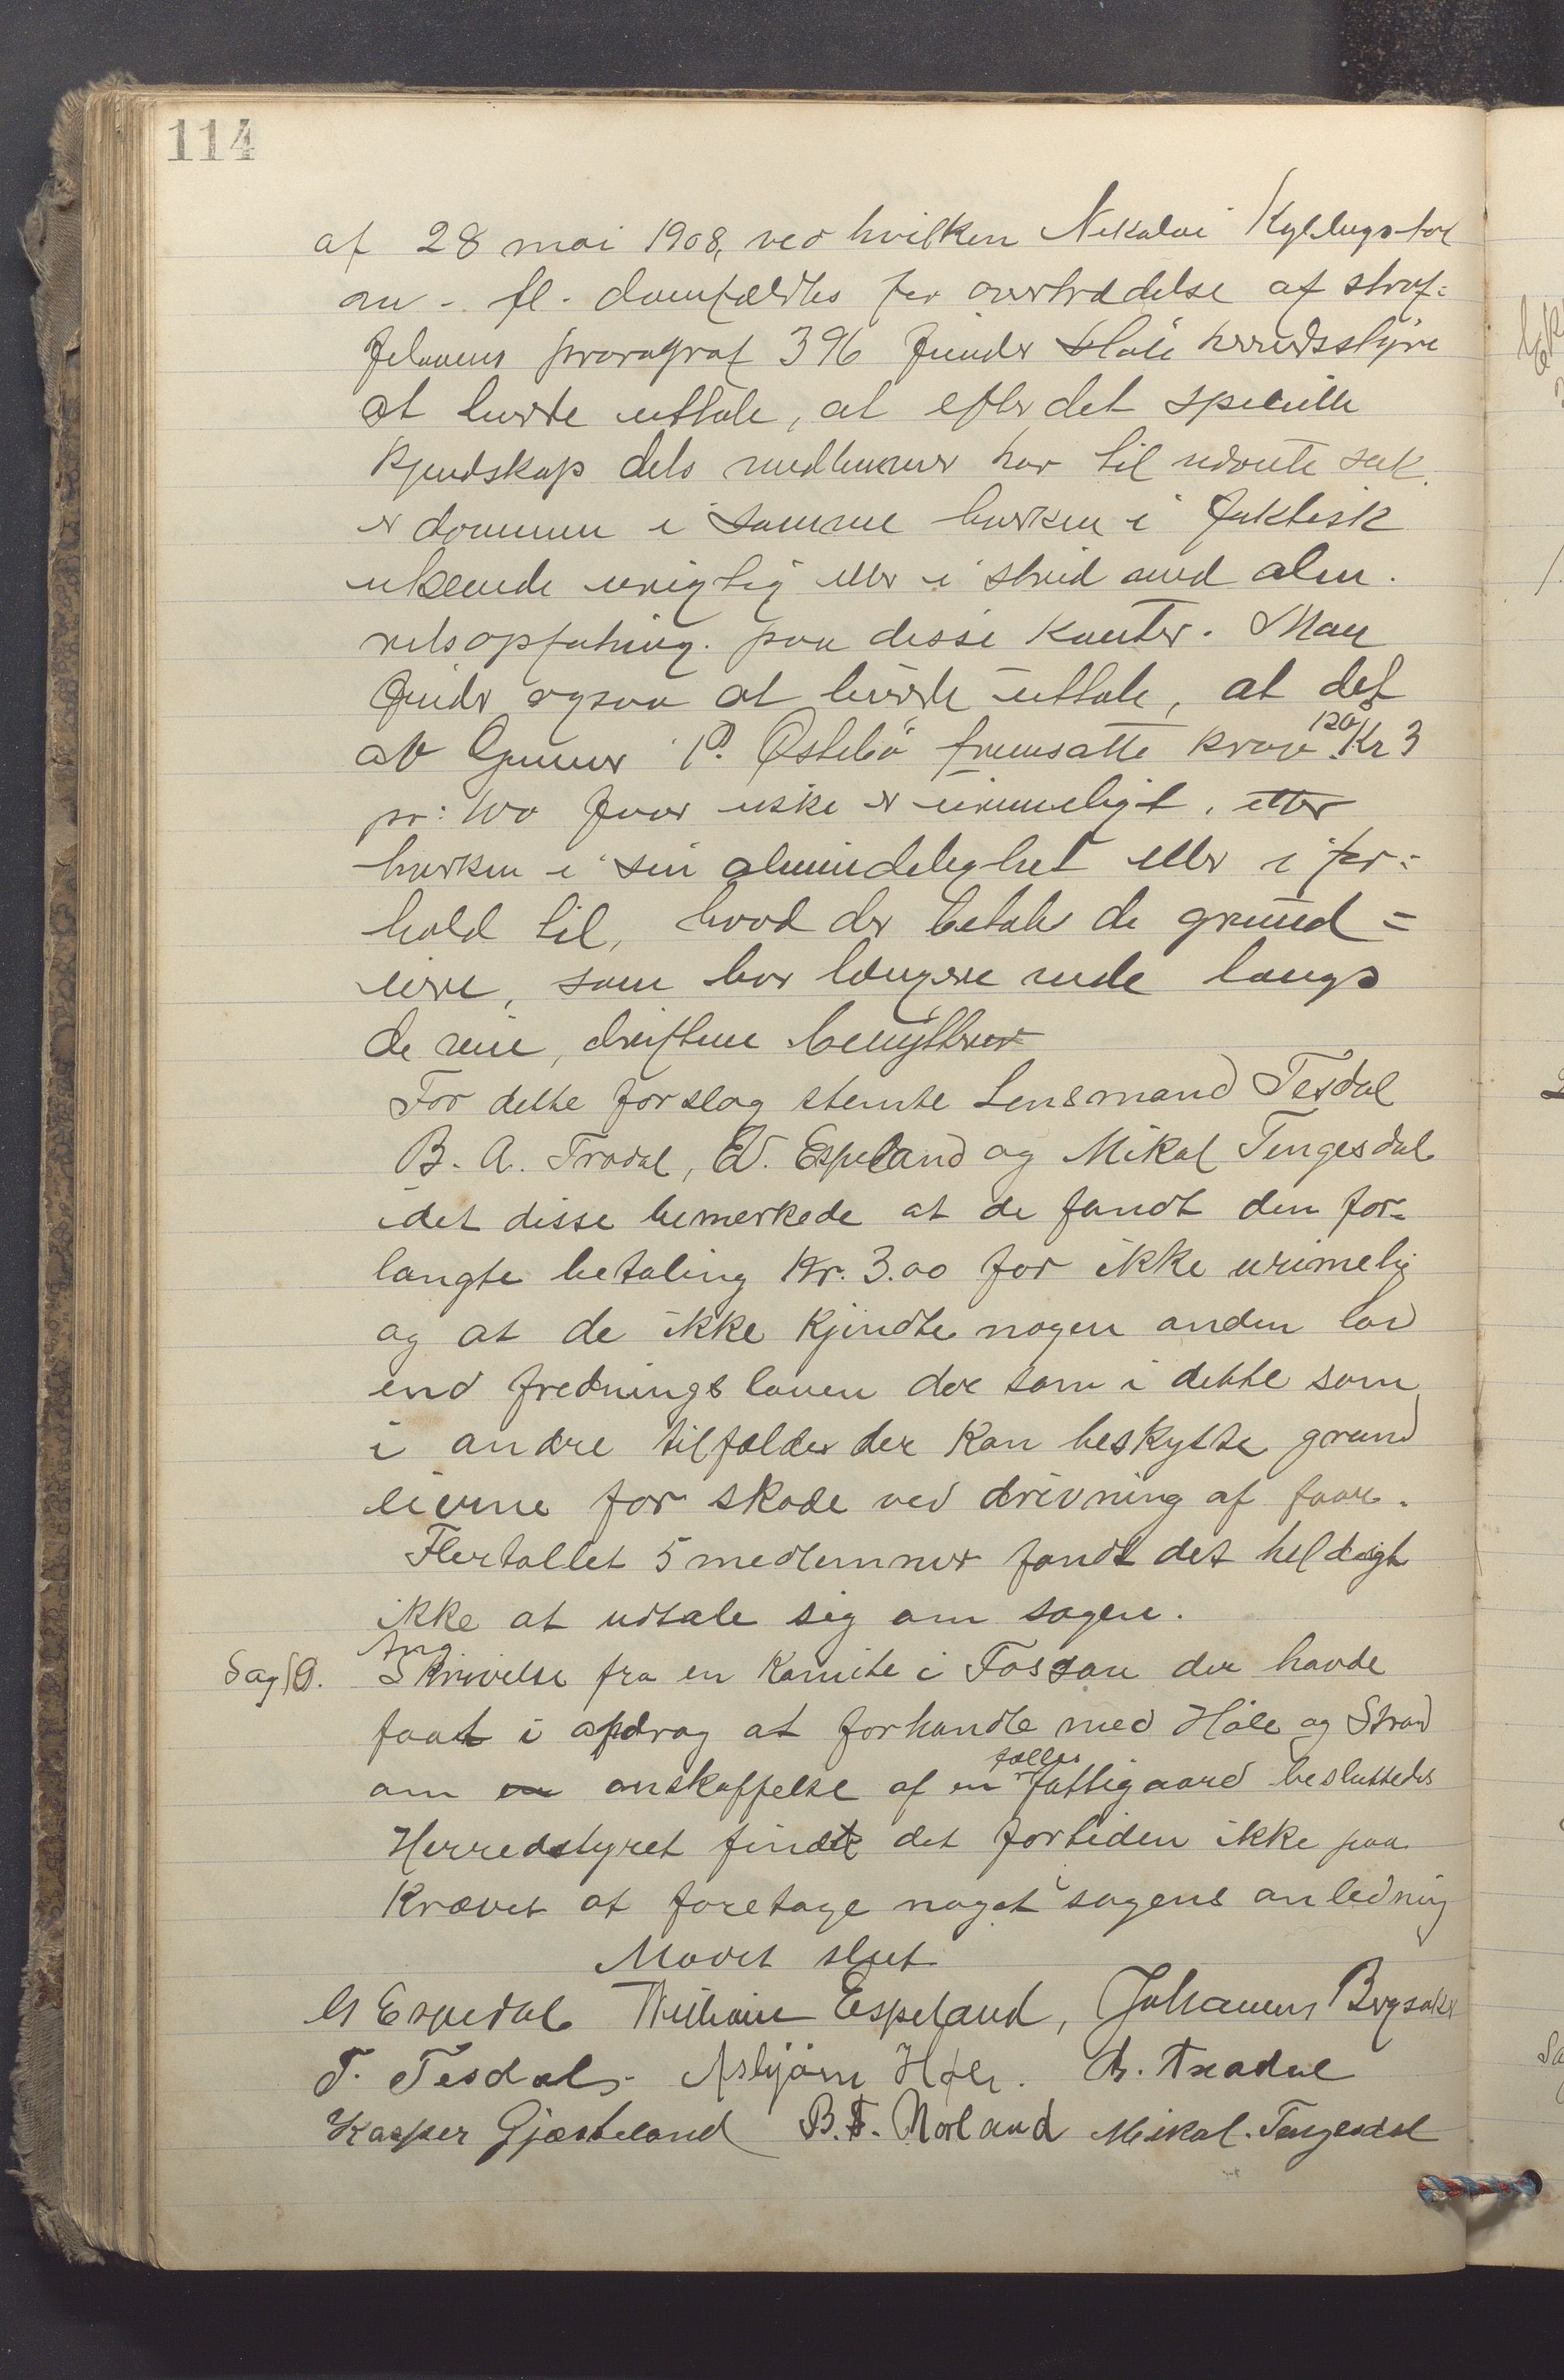 114
af 28 mai 1908, ved hvilken Nikolai Kyllingstad
m. fl. domfældtes for overtrædelse af straf=
felovens paragraf 396 finder Høle herredsstyre
at burde uttale, at efter det specielle
kjendskap dets medlemmer har til nævnte sak
er dommen i samme hverken i faktisk
henseende urigtig eller i strid med alm.
retsopfatning paa disse kanter. Man
finder ogsaa at burde uttale, at det
av Gunnar P. Østebø fremsatte krav Kr 3
pr: 100 faar ikke er urimeligt, etter
hverken i sin almindelighet eller i for=
hold til, hvad der betales de grund=
eiere, som bor længere inde langs
de veie, driftene benytter
For dette forslag stemte Lensmand Tesdal
B. A. Tradal, W. Espeland og Mikal Tengesdal
idet disse bemerkede at de fandt den for=
langte betaling Kr. 3.00 for ikke urimelig
og at de ikke kjendte nogen anden lov
end fredningsloven der som i dette som
i andre tilfælder der kan beskytte grund
eierne for skade ved drivning af faar.
Flertallet 5 medlemmer fandt det heldigt
ikke at udtale sig om sagen.
Sag 9. Ang
Skrivelse fra en Komite i Fossan der havde
faat i opdrag at forhandle med Høle og Strand
om en anskaffelse af en fælles fattigaard besluttedes
Herredstyret findt det fortiden ikke paa
krævet at foretage noget i sagens anledning
Mødet slut
Espedal William Espeland, Johannes Bergsaker
T. Tesdal. Asbjørn Høle. B. A. Tradal
Kasper Gjæsteland B. T. Norland Mikal. Tengesdal